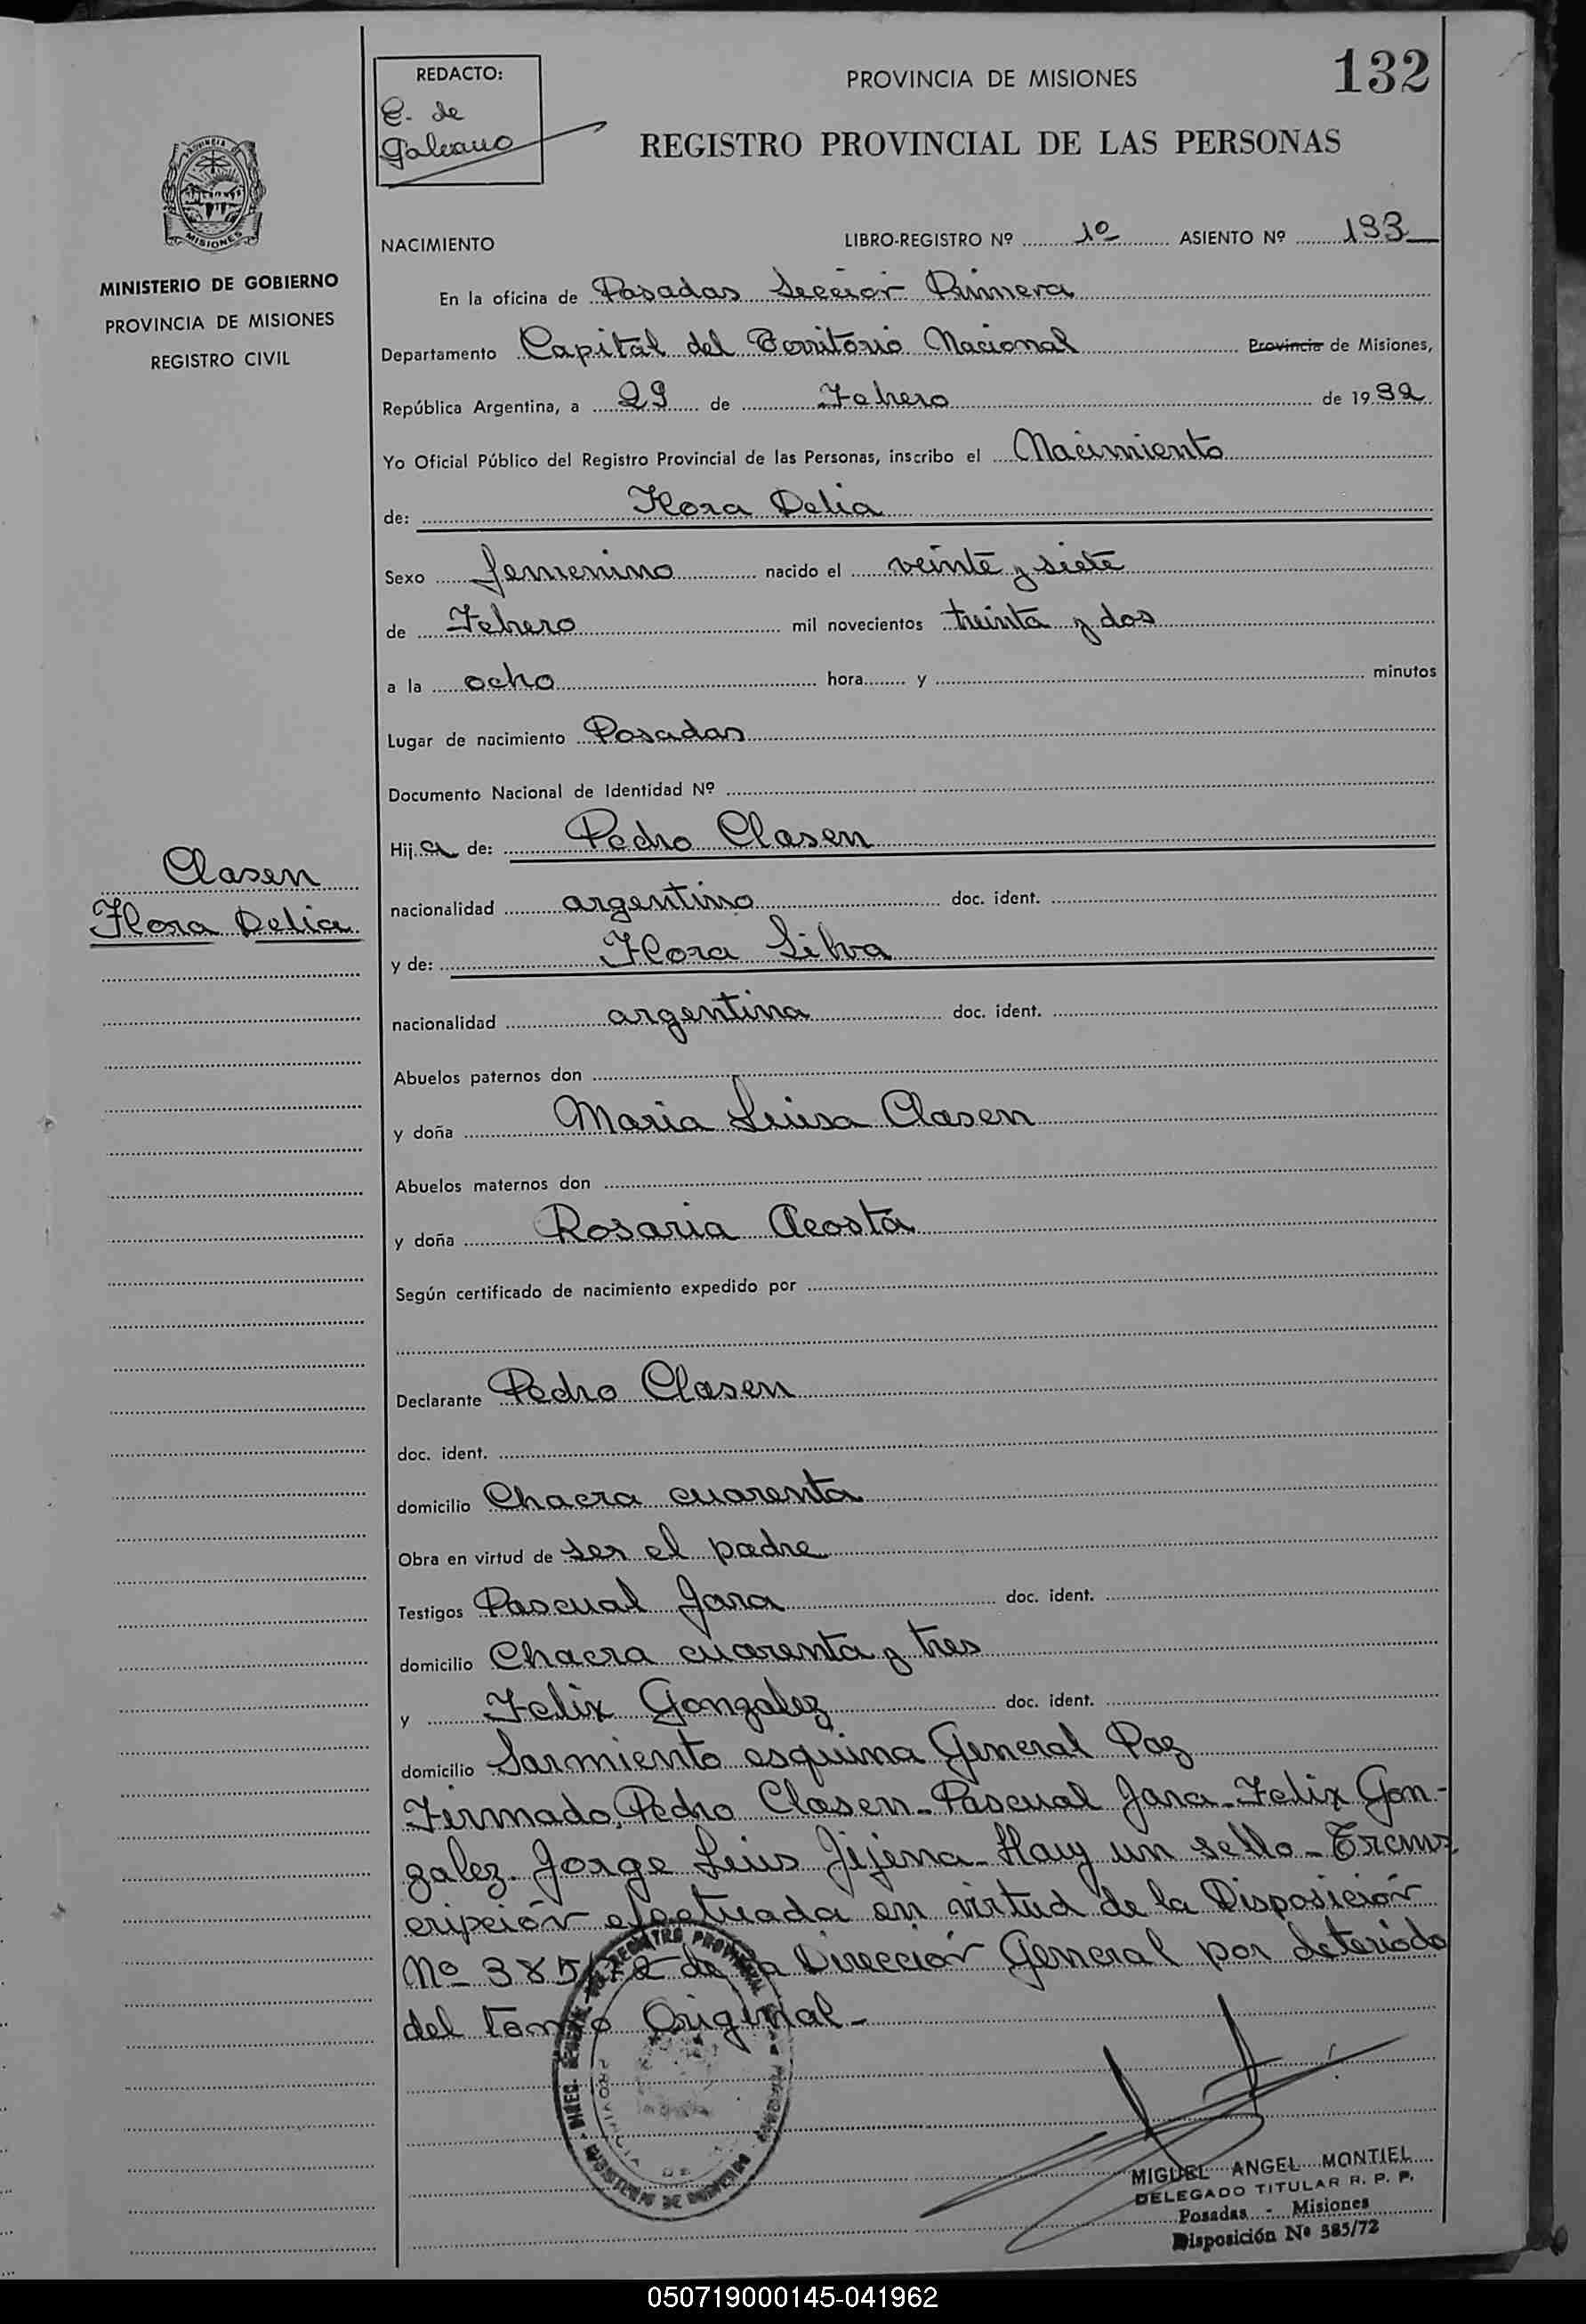 132
REDACTO:
E. de
Galeano
PROVINCIA DE MISIONES
REGISTRO PROVINCIAL DE LAS PERSONAS
MISIONES
MINISTERIO DE GOBIERNO
PROVINCIA DE MISIONES
REGISTRO CIVIL
NACIMIENTO LIBRO-REGISTRO Nº 1º ASIENTO Nº 193
En la oficina de Posadas Sección Primera
Departamento Capital del Territorio Nacional Provincia de Misiones,
República Argentina, a 29 de Febrero de 1932
Yo Oficial Público del Registro Provincial de las Personas, inscribo el Nacimiento
de: Flora Delia
Sexo femenino nacido el veinte y siete
de Febrero mil novecientos treinta y dos
a la ocho hora y minutos
Lugar de nacimiento Posadas
Documento Nacional de Identidad Nº
Hija de: Pedro Clasen
nacionalidad argentino doc. ident.
y de: Flora Silva
nacionalidad argentina doc. ident.
Abuelos paternos don
y doña Maria Luisa Clasen
Abuelos maternos don
y doña Rosaria Acosta
Según certificado de nacimiento expedido por
Declarante Pedro Clasen
doc. ident.
domicilio Chacra cuarenta
Obra en virtud de ser el padre
Testigos Pascual Jara doc. ident.
domicilio Chacra cuarenta y tres
y Felix Gonzalez doc. ident.
domicilio Sarmiento esquina General Paz
Firmado, Pedro Clasen - Pascual Jara - Felix Gon-
zalez. Jorge Luis Jijena - Hay un sello - Trans-
cripción efectuada en virtud de la Disposición
Nº 385/72 de la Dirección General por deteriodo
del tomo Original -
Clasen
Flora Delia
MIGUEL ANGEL MONTIEL
DELEGADO TITULAR R. P. P.
Posadas - Misiones
Disposición Nº 385/72
050719000145-041962